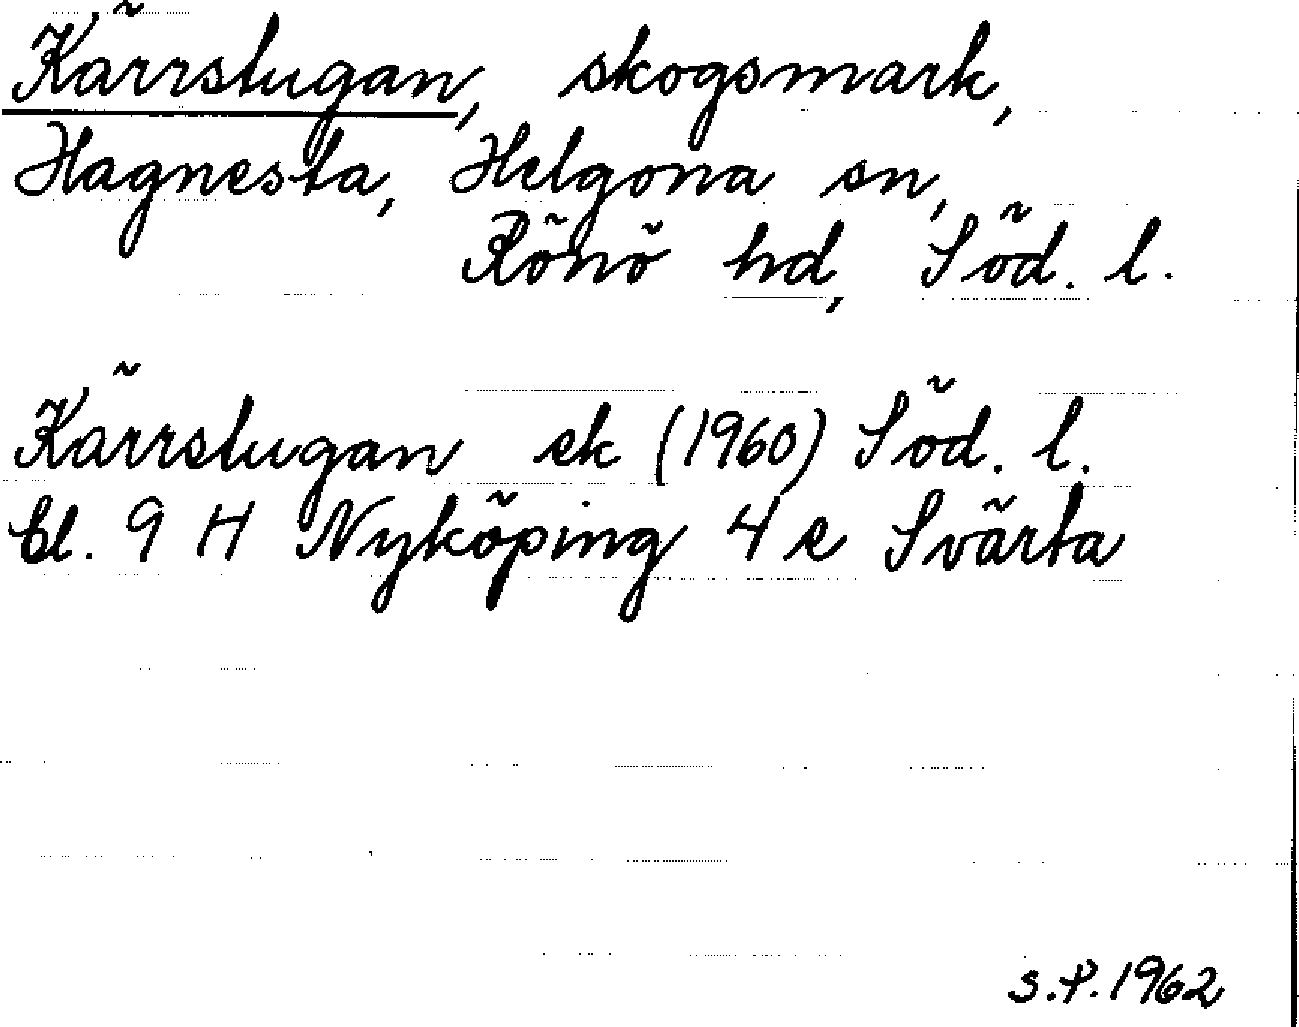 Kärrslugan, skogsmark,
Hagnesta, Helgona sn,
Rönö hd, Söd. l.
Kärrslugan ek (1960) Söd. l.
bl. 9 H Nyköping 4 e Svärta
S.P. 1962